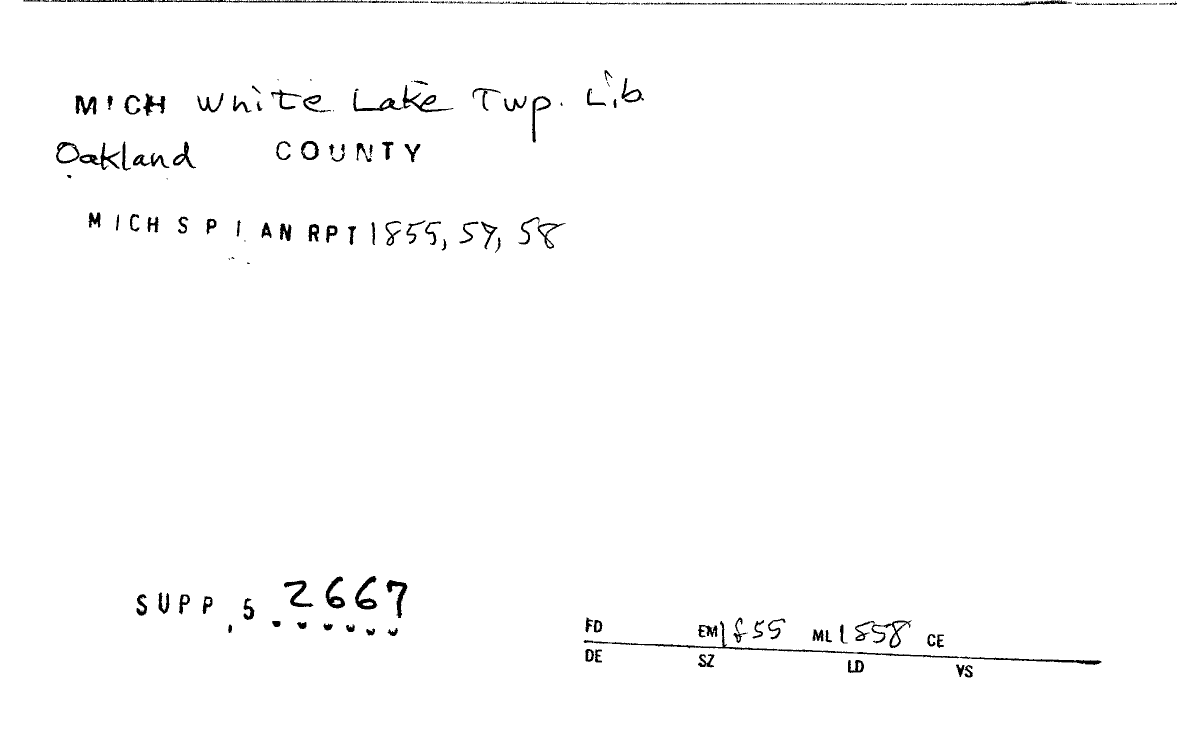 MICH White Lake Twp. Lib
Oakland COUNTY
MICH S P I AN RPT 1855, 57, 58
SUPP, 5 2667
FD EM 1855 ML 1858 CE
DE SZ LD VS